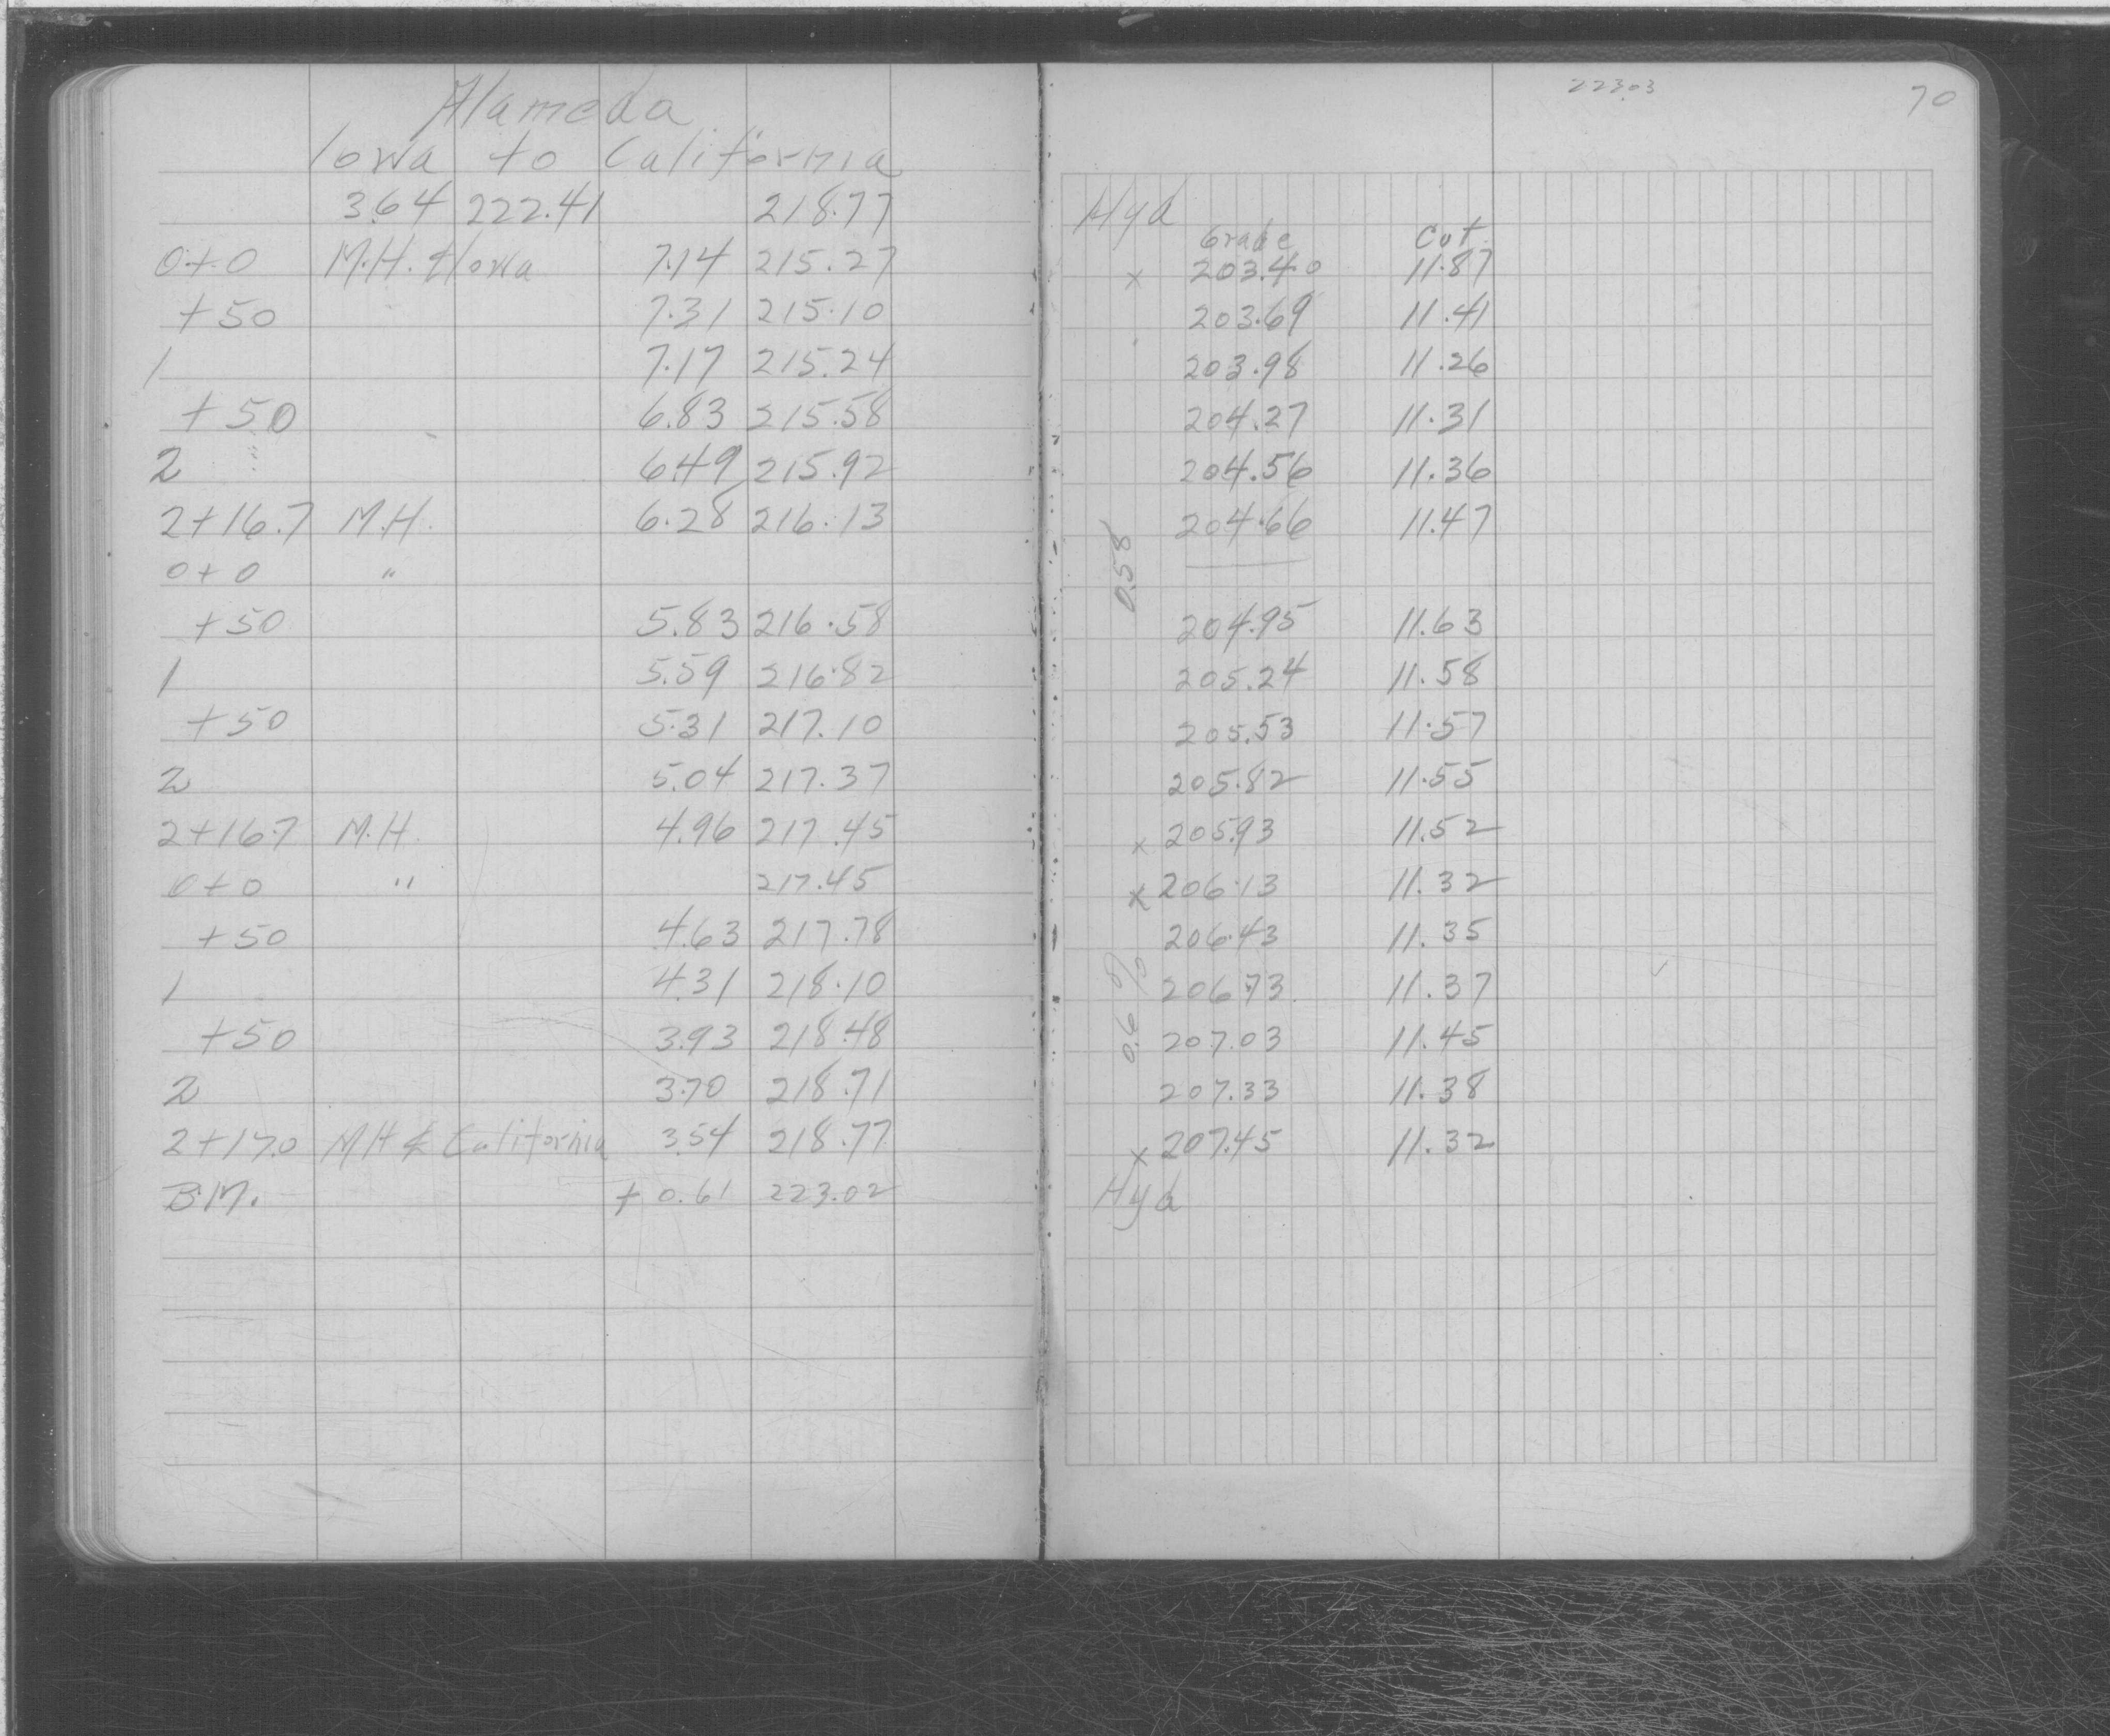 Alameda
Iowa to California
3.64 222.41 218.77
0+0 M.H. ℄ Iowa 7.14 215.27
+50 7.31 215.10
1 7.17 215.24
+50 6.83 215.58
2 6.49 215.92
2+16.7 M.H. 6.28 216.13
0+0 "
+50 5.83 216.58
1 5.59 216.82
+50 5.31 217.10
2 5.04 217.37
2+16.7 M.H. 4.96 217.45
0+0 " 217.45
+50 4.63 217.78
1 4.31 218.10
+50 3.93 218.48
2 3.70 218.71
2+17.0 MH ℄ California 3.54 218.77
B.M. + 0.61 223.02
223.03
70
Hyd
Grade Cut
x 203.40 11.87
203.69 11.41
203.98 11.26
204.27 11.31
204.56 11.36
204.66 11.47
0.58
204.95 11.63
205.24 11.58
205.53 11.57
205.82 11.55
x 205.93 11.52
x 206.13 11.32
206.43 11.35
0.6%
206.73 11.37
207.03 11.45
207.33 11.38
x 207.45 11.32
Hyd